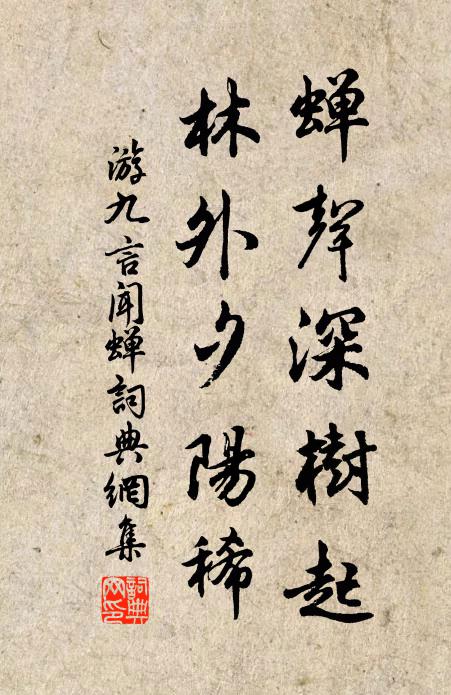 蟬聲深樹起
林外夕陽稀
游九言聞蟬詞典網集
詞典網印